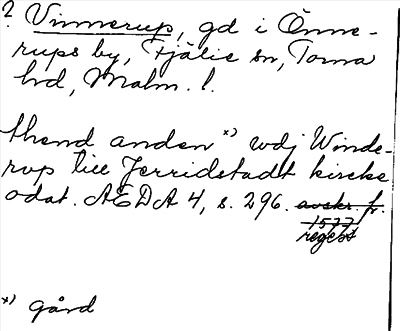 ? Vinnerup, gd i Önne-
rups by, Fjälie sn, Torna
hd, Malm. l.
thend anden x) wdj Winde-
rup till Jerridstadt kircke
odat. AEDA 4, s. 296. avskr. fr.
1577
regest
x) gård